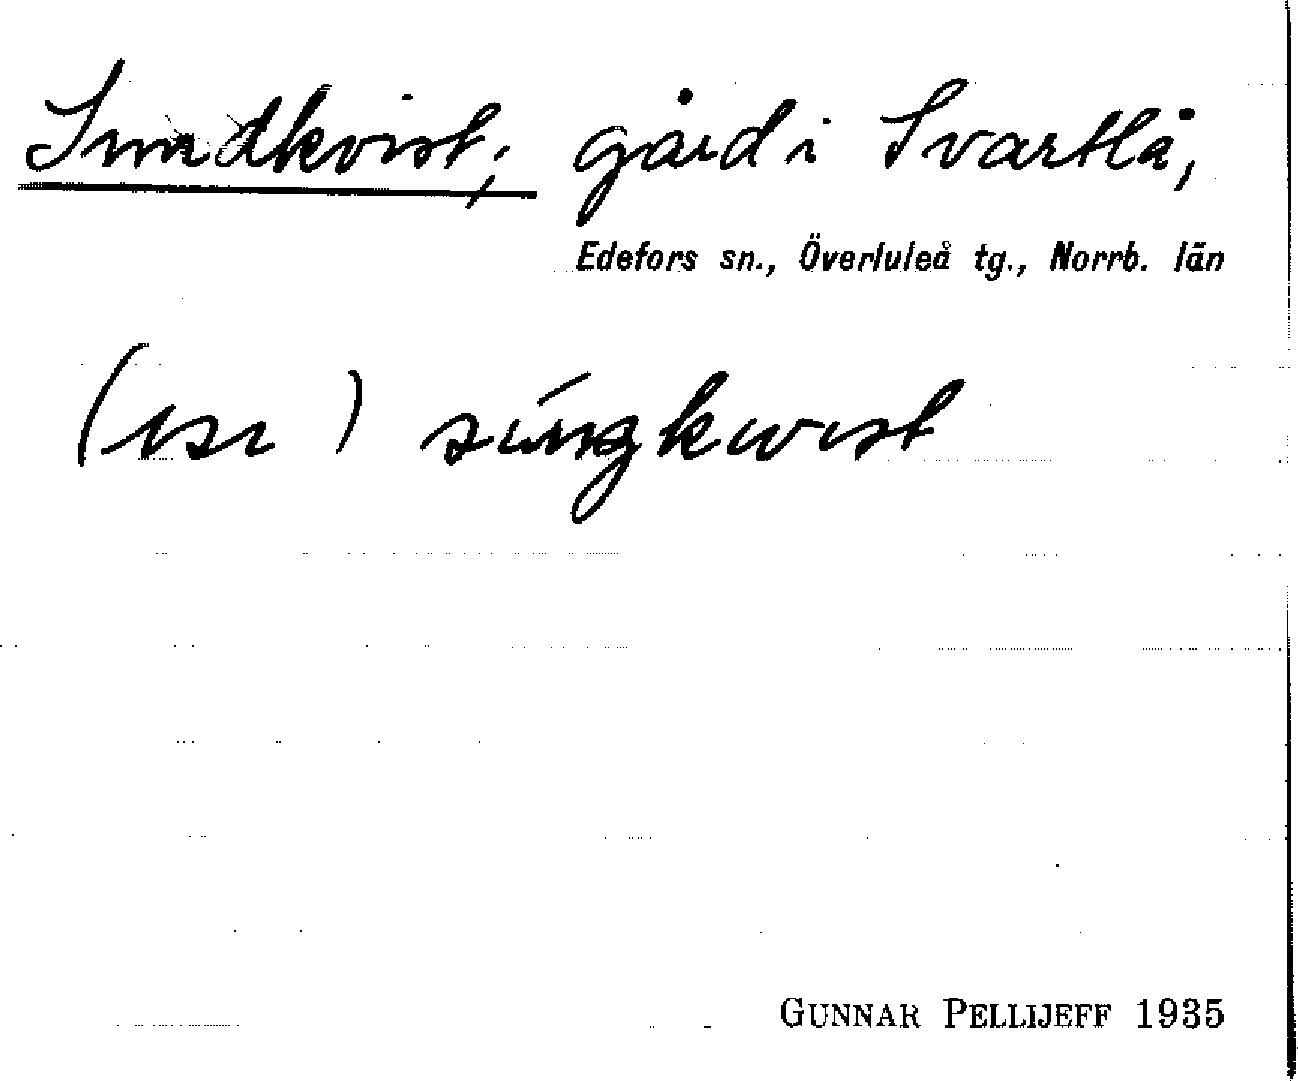 Sundkvist; gård i Svartlå,
Edefors sn., Överluleå tg., Norrb. län
( ) súngkwist
GUNNAR PELLIJEFF 1935